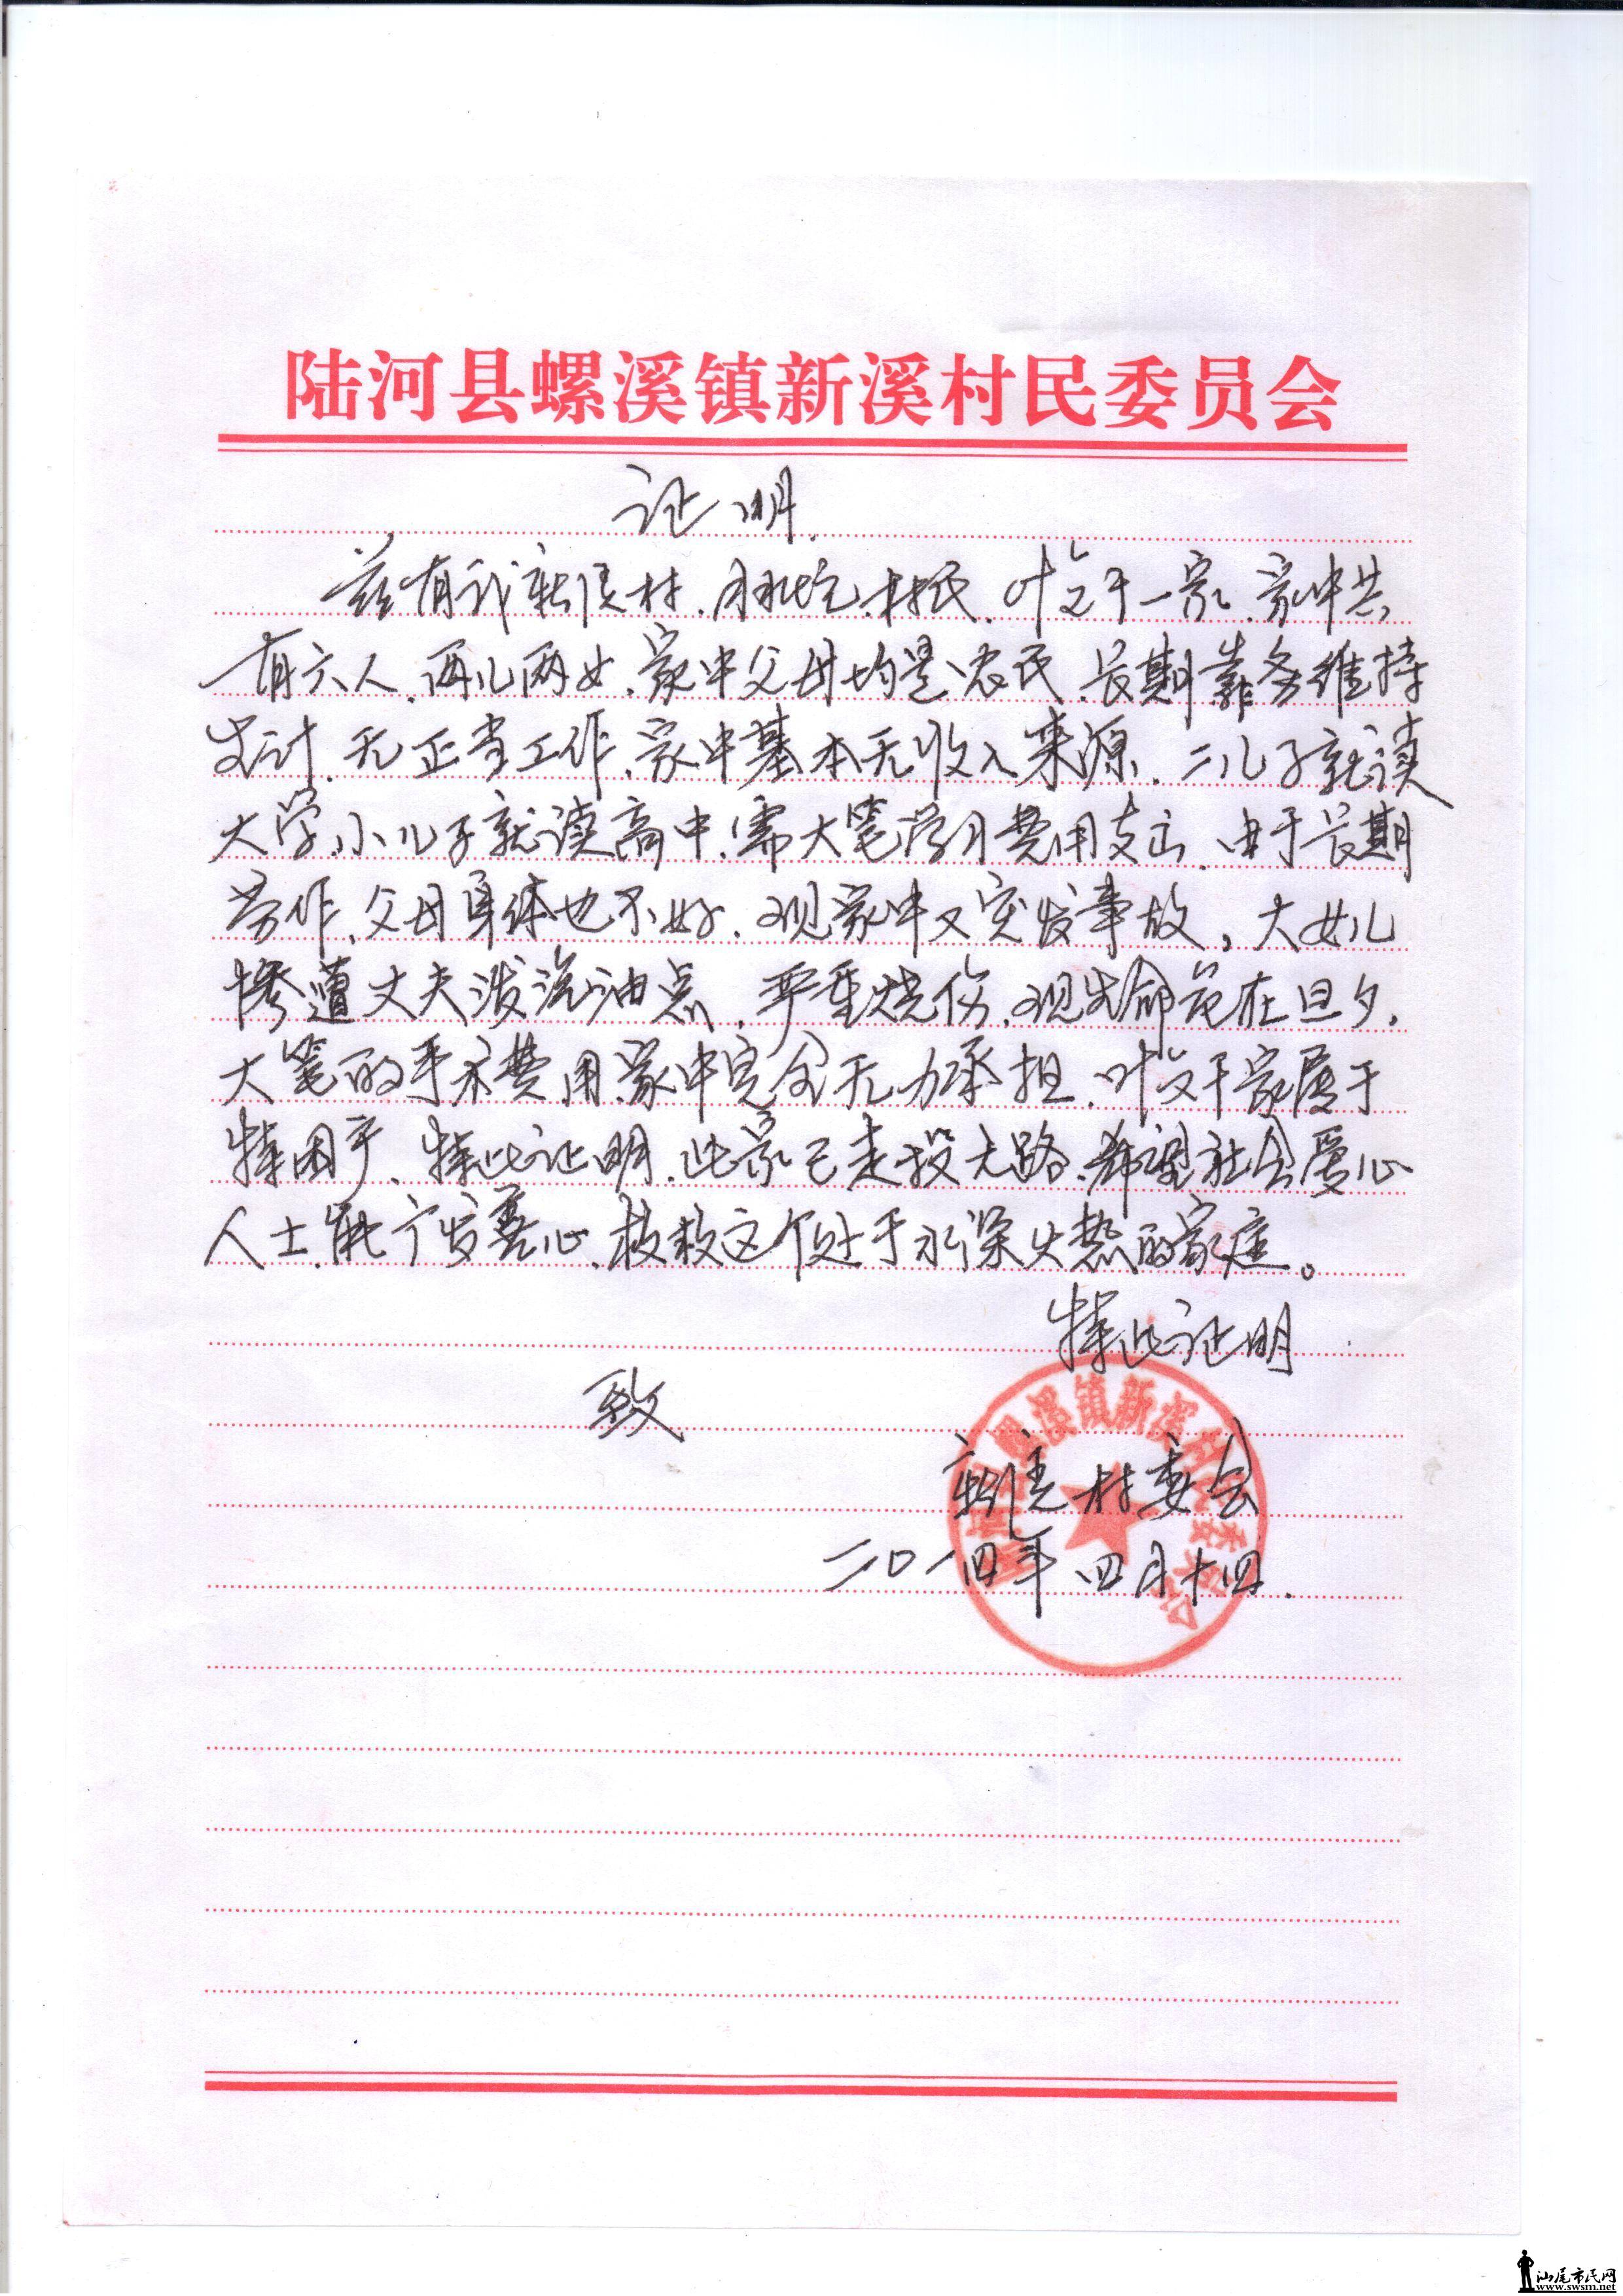 陆河县螺溪镇新溪村民委员会
证明
兹有我新溪村村民叶文干一家.家中共
有六人.两儿两女.家中父母均是农民.长期靠务维持
生计.无正当工作.家中基本无收入来源.二儿子就读
大学.小儿子就读高中.需大笔学习费用支出.由于长期
劳作.父母身体也不好.现家中又突发事故,大女儿
惨遭丈夫泼汽油点.严重烧伤.现生命危在旦夕.
大笔的手术费用家中完全无力承担.叶文干家属于
特困户.特此证明.此家已走投无路.希望社会爱心
人士能广发善心.拔救这个处于水深火热的家庭。
特此证明
致
新溪村委会
二〇一四年四月十四.
螺溪镇新溪村民委员会
汕尾市民网
www.swsm.net